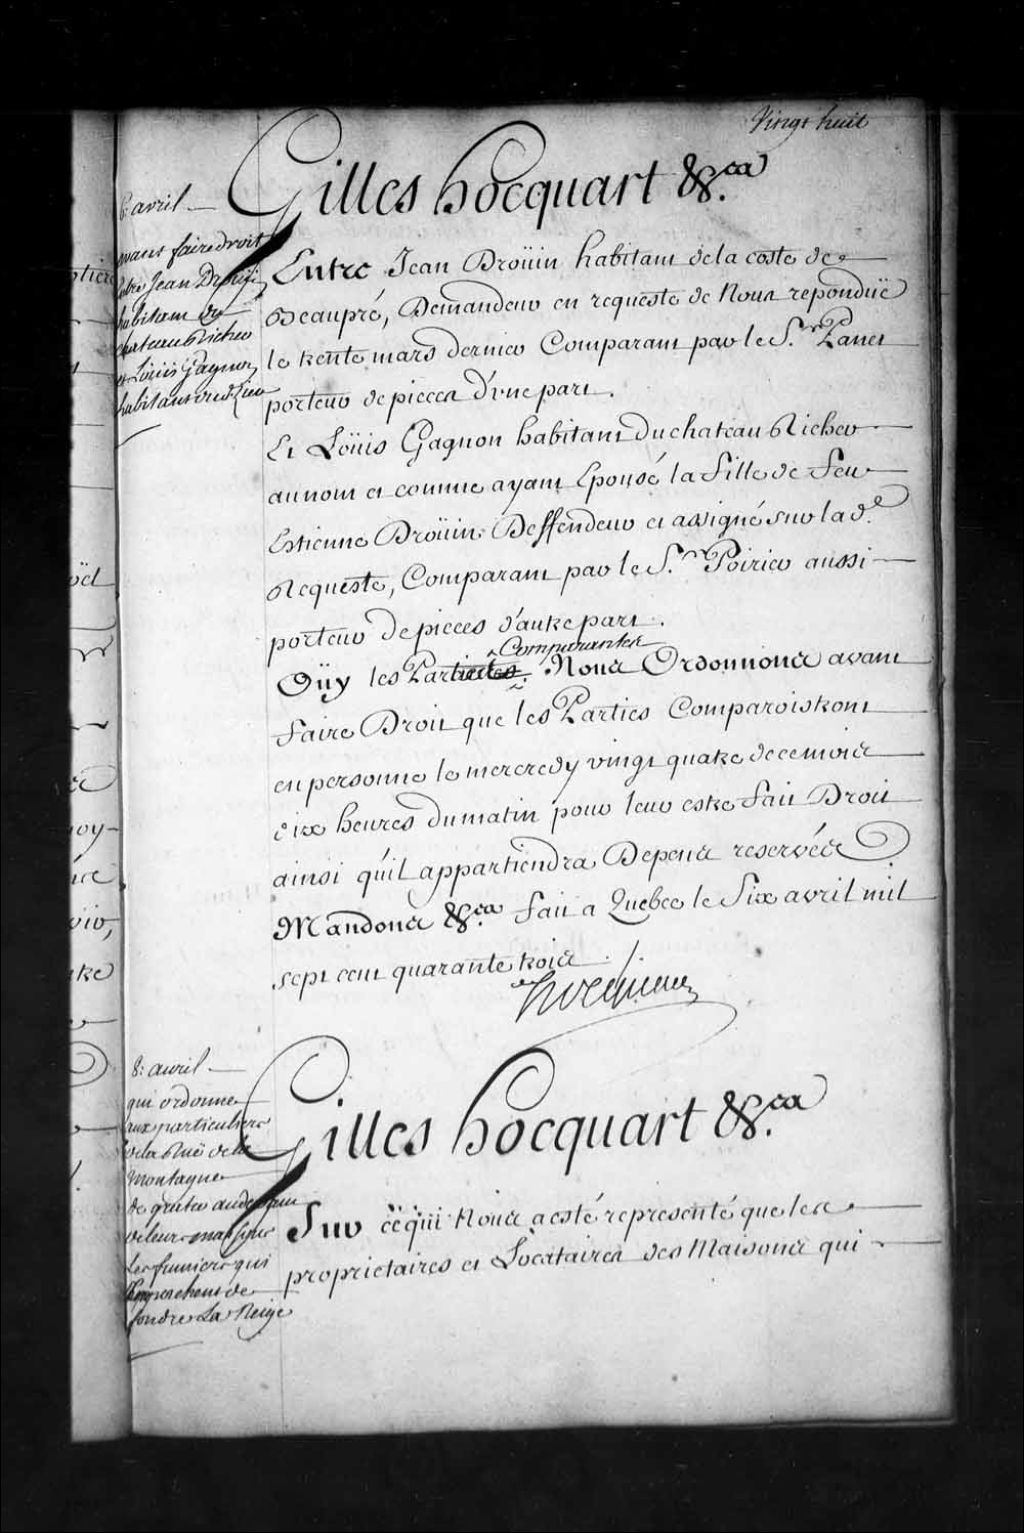 Vingt huit
Gilles hocquart &.ca
6: avril
avant faire droit
entre Jean Drouin
habitant de
chateau Richer
et Louis Gagnon
habitant
Entre Jean Droüin habitant dela coste de
Beaupré, Demandeur en requeste de Nous repondüe
le trente mars dernier Comparant par le S.r Panet
porteur de pieces d'une part.
Et Loüis Gagnon habitant du chateau Richer
au nom et comme ayant Epousé la fille de feu
Estienne Droüin Deffendeur et assigné sur la d.e
Requeste, Comparant par le S.r Poirier aussi
porteur de pieces d'autre part.
Comparantes
Oüy les Parties Nous Ordonnons avant
faire Droit que les Parties Comparoistront
en personne le mercredy vingt quatre de ce mois
dix heures du matin pour leur estre fait Droit
ainsi qu'il appartiendra Depens reservés
Mandons &.ca fait a Quebec le Six avril mil
sept cent quarante trois ./.
hocquart
8: avril
qui ordonne
aux particuliers
de la Ruë de la
montagne
de gratter au devant
de leurs maisons
Les fumiers qui
Empeschent de
fondre La Neige
Gilles hocquart &.ca
Sur ce qui Nous a esté representé que les
proprietaires et Locataires des Maisons qui